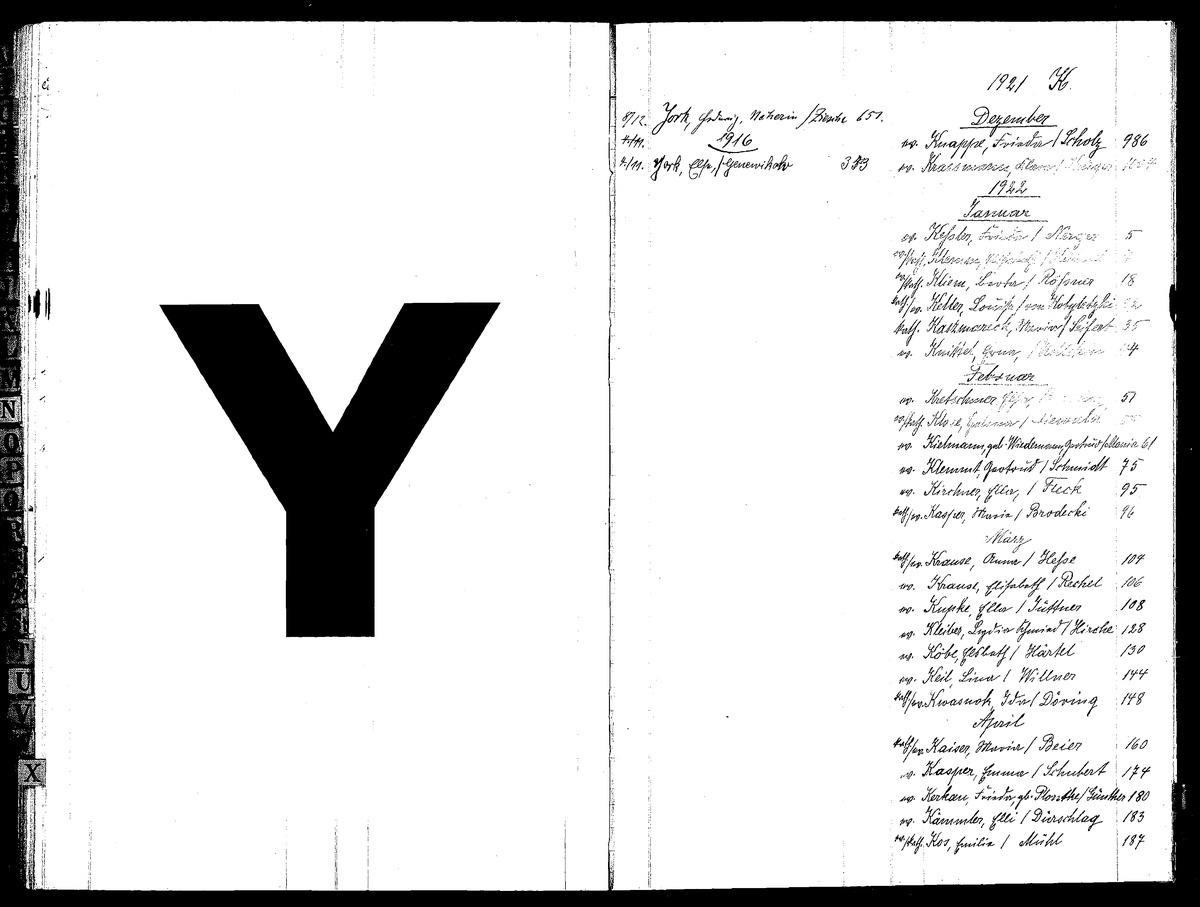 Y
M
N
O
P
Q
T
U
V
X
8/12. York, Hedwig, Näherin / Ziesche 651.
1916
4./11. York, Else, / Genewitzkow 353
1921 K.
Dezember
ev. Knappe, Frieda / Scholz 986
ev. Krassmann, Klara / Krüger
1922
Januar
ev. Keßler, Frieda / Nerger 5
ev./kath. Klemm,
ev./kath. Kliem, Berta / Rößner 18
kath./ev. Keller, Louise / von Kobyletzki
kath. Kaczmareck, Maria / Seifert 35
ev. Knittel, Erna, /
Februar
ev. Kretschmer, Else, 51
ev./kath. Klose,
ev. Kielmann, geb. Wiedemann, Gertrud / Menia 61
ev. Klemmt, Gertrud / Schmidt 75
ev. Kirchner, Ella, / Fleck 95
kath./ev. Kasper, Maria / Brodecki 96
März
kath./ev. Krause, Anna / Heße 104
ev. Krause, Elisabeth / Rechel 106
ev. Kupke, Ella / Jüttner 108
ev. Kleiber, Lydia Schmied / Hirche 128
ev. Köbe, Elsbeth / Härtel 130
ev. Keil, Lina / Willner 144
kath./ev. Kwasnok, Ida / Döring 148
April
kath./ev. Kaiser, Maria / Beier 160
ev. Kasper, Emma / Schubert 174
ev. Kerkau, Frieda, gb. / Günther 180
ev. Kämmler, Elli / Dierschlag 183
ev./kath. Kos, Emilie / Mühl 187